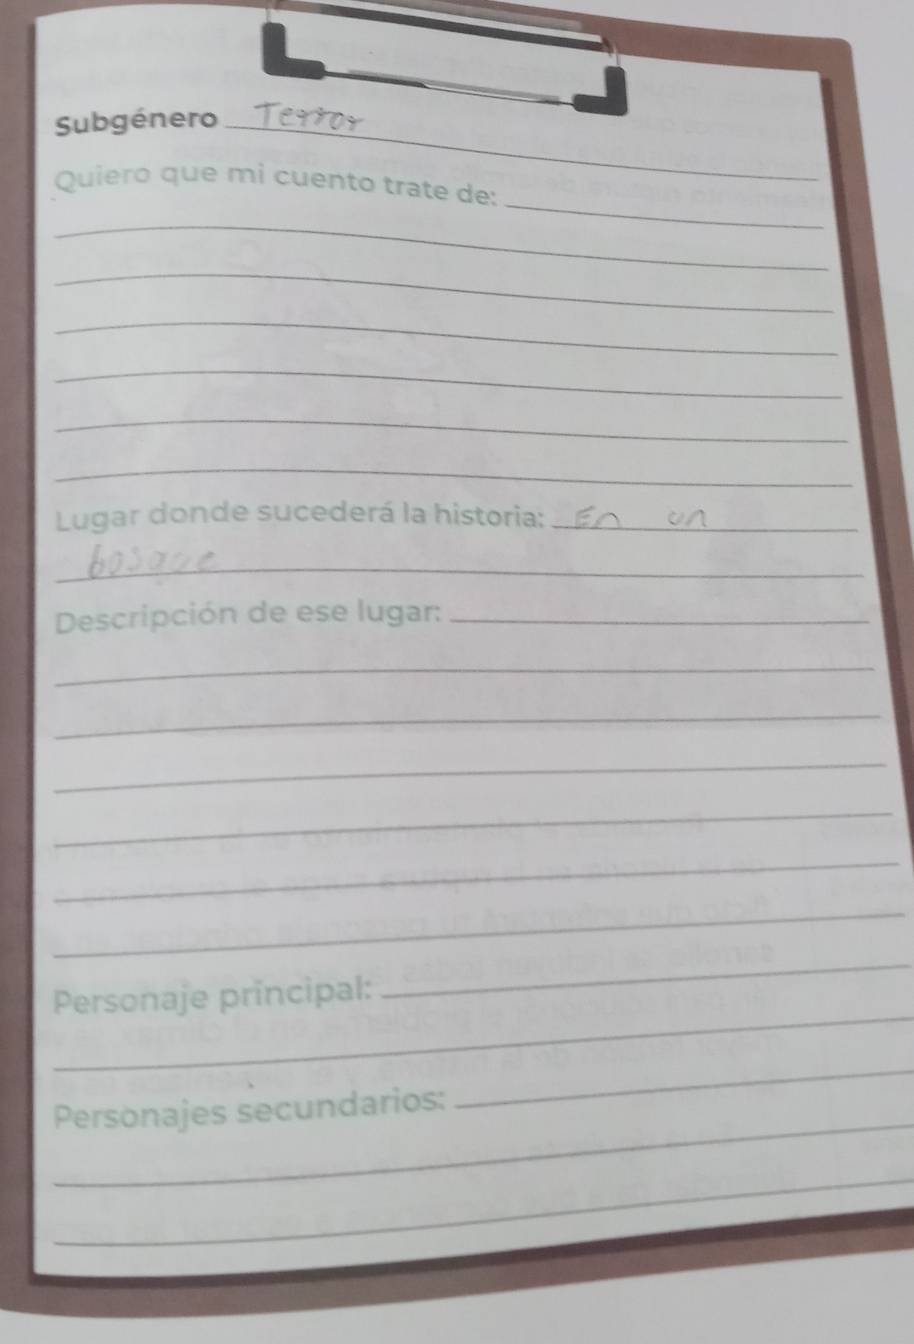 Subgénero Terror
Quiero que mi cuento trate de:
Lugar donde sucederá la historia: En un
bosque
Descripción de ese lugar:
Personaje principal:
Personajes secundarios: